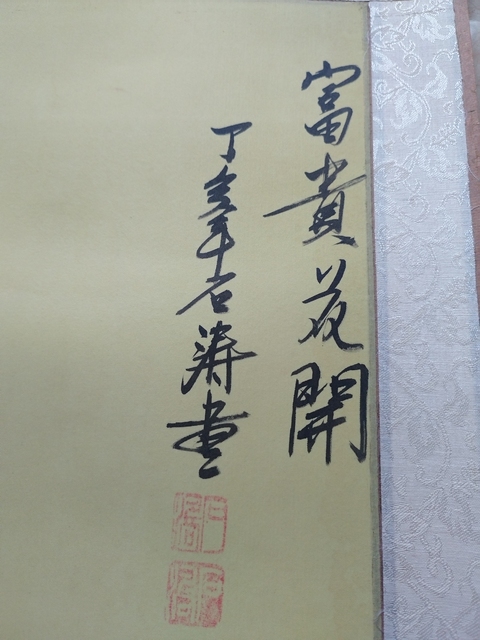 富貴花開
丁亥年石濤畫